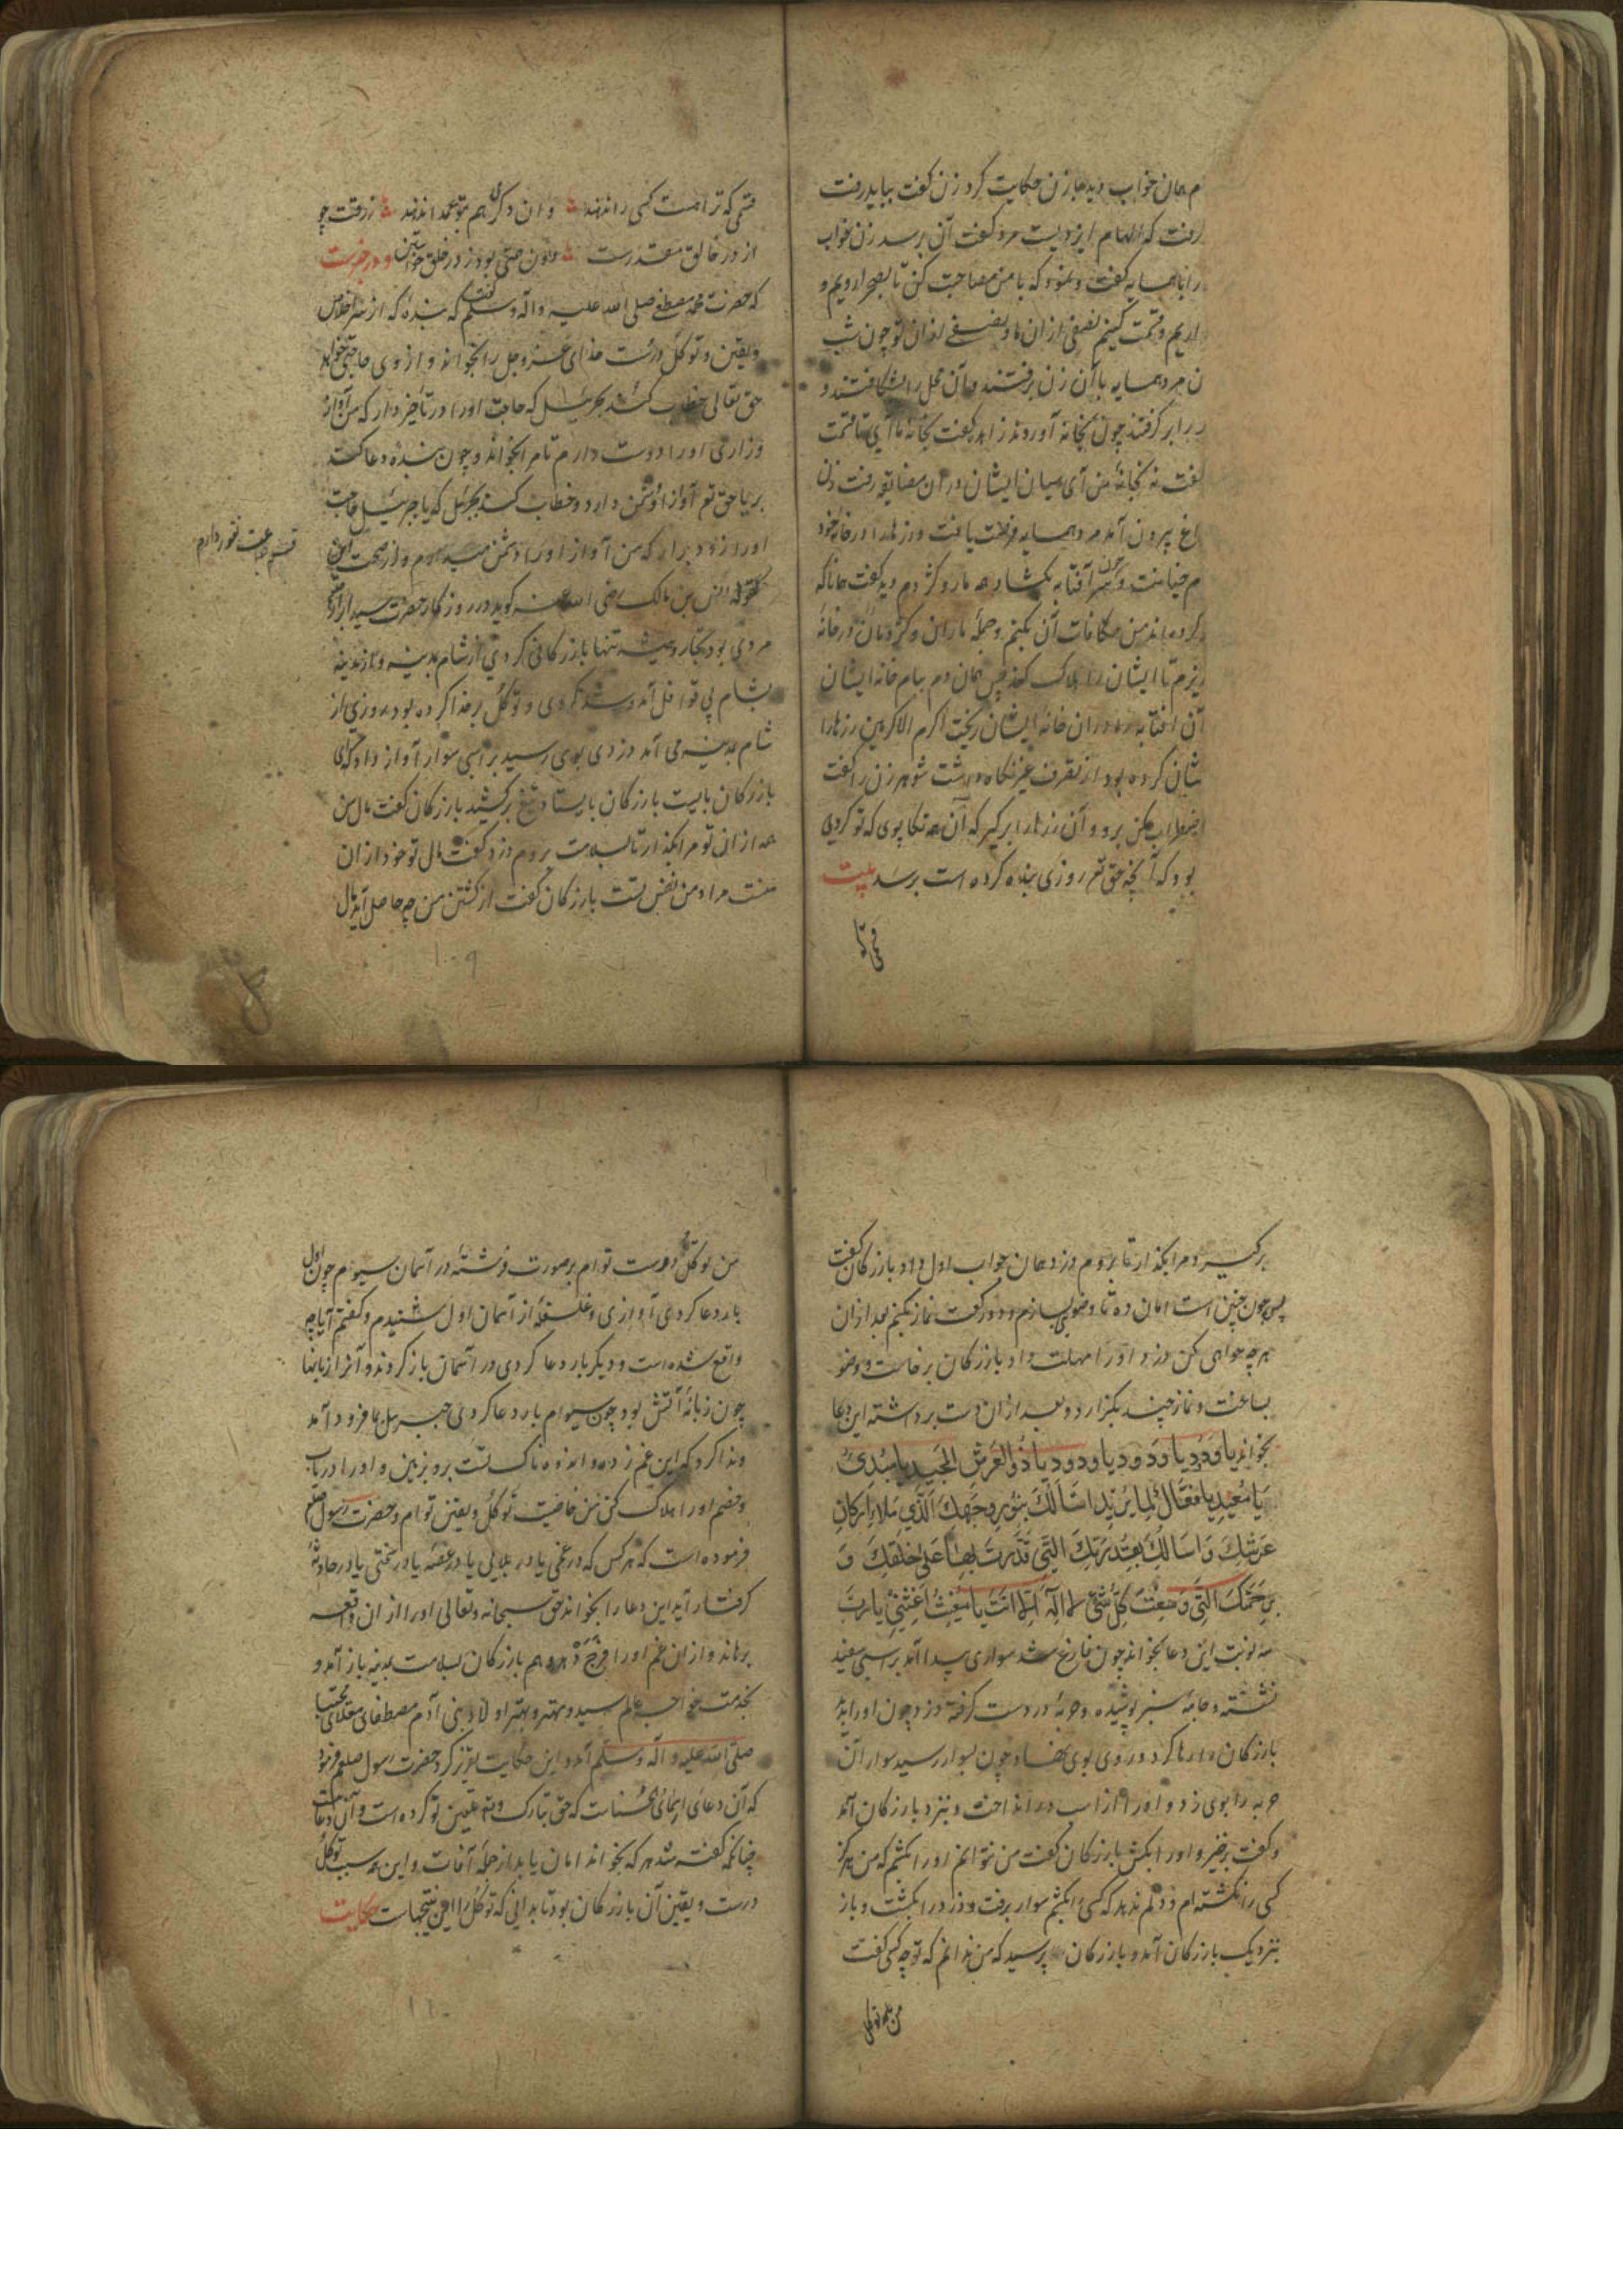 م همان خواب دید با زن حکایت کرد زن گفت بباید رفت
رفت که الهام ایزدیست مرد گفت آن برسد زن خواب
را با همسایه گفت و بنمود که با من مصاحبت کن تا بصحرا رویم و
اریم و قسمت کنیم نصفی از ان ما و نصفی از ان تو چون شب
ن مرد همسایه با آن زن برفتند و آن محل را بشکافتند و
ر برابر گرفتند چون بخانه آوردند زاهد گفت بخانه ما آی تا قسمت
گفت نه بخانهٔ من آی میان ایشان در ان مضایقه رفت زن
اغ بیرون آمد مرد همسایه فرصت یافت و زرها را در خانه خود
م خیانت و چون سر آفتابه بکشاد همه مار و کژدم دید گفت همانا که
کرده اند من مکافات آن بکنم و جمله ماران و کژدمان در خانهٔ
ریزم تا ایشان را هلاک کند پس همان دم ببام خانه ایشان
آن افتابه را در ان خانه ایشان ریخت اکرم الاکرمین زرها را
شان کرده بود از تصرف غیر نگاه داشت شوهر زن را گفت
اضطراب مکن برو و آن زرها را برگیر که آن همه تکاپوی که تو کردی
بود که آنچه حق تع روزی بنده کرده است برسد بیت
قسمی که ترا
قسمی که ترا هست کسی را ندهند و ان دگران هم بتو عمدا ندهند رزقت چو
از در خالق مقدرست خواستن و در خبرست
که حضرت محمد مصطفی صلی الله علیه و آله وسلم گفت که بنده که از سر اخلاص
و یقین و توکل درست خدای عز و جل را بخواند و از وی حاجتی خواهد
حق تعالی خطاب کند بجبرئیل که حاجت او را در تاخیر دار که من آواز
و زاری او را دوست دارم تا مرا بخواند و چون بنده دعا کند
بریا حق تع آواز او دشمن دارد و خطاب کند بجبرئیل که یا جبرئیل حاجت
او را زود برآر که من آواز او را دشمن میدارم و از صحت این
گفتو که انس بن مالک رضی الله عنه گوید در روزگار حضرت سید ابرار
مردی بود تجار و همیشه تنها بازرکانی کردی از شام بمدینه و از مدینه
بشام بی قوافل آمد و شد کردی و توکل بر خدا کرده بود روزی از
شام بمدینه می آمد دزدی بوی رسید بر اسبی سوار آواز داد که ای
بازرکان بایست بازرکان بایستاد تیغ برکشید بازرکان گفت مال من
همه از ان تو مرا بگذار تا بسلامت بروم دزد گفت مال تو خود از ان
منست مراد من نفس تست بازرکان گفت از کشتن من چه حاصل آید مال
۱۰۹
برگیر و مرا بگذار تا بروم دزد همان جواب اول داد بازرکان گفت
پس چون چنین است امان ده تا وضوی بسازم و دو رکعت نماز بکنم بعد از ان
هرچه خواهی کن دزد او را مهلت داد بازرکان برخاست و وضو
بساخت و نماز چند بگزارد و بعد از ان دست برداشته این دعا
بخواند یا وَدُودُ یا وَدُود یا ودود یا ذُوالعَرشِ المَجیدِ یا مُبدِیُ
یَا مُعِیدُ یا فَعَّالُ لِمَا یُرِیدُ اسْأَلُكَ بِنُورِ وَجهِكَ الَّذِي مَلَاَ اَركَانَ
عَرشِكَ وَ اسَالُكَ بِقُدرَتِكَ الَّتِي قَدَّرتَ بِهَا عَلى خَلقِكَ وَ
بِرَحمَتِكَ الَّتِي وَسِعَت كُلَّ شَیء لا الٓهَ اِلا اَنتَ یا مُغِیثُ اَغِثنِي یا رب
سه نوبت این دعا بخواند چون فارغ شد سواری پیدا آمد بر اسبی سفید
نشسته و جامهٔ سبز پوشیده و حربهٔ در دست گرفته دزد چون او را بدید
بازرکان را رها کرد و روی بوی نهاد چون بسوار رسید سوار آن
حربه را بوی زد و او را از اسب در انداخت و بنزد بازرکان آمد
و گفت برخیز و او را بکش بازرکان گفت من نتوانم او را بکشم که من هرگز
کسی را نکشته ام و دلم ندهد که کسی را بکشم سوار برفت و دزد را بکشت و باز
بنزدیک بازرکان آمد و بازرکان پرسید که من ندانم که تو چه کسی گفت
من توکل
من توکل درست توام بر صورت فرشتهٔ در آسمان سیوم چون اول
بار دعا کردی آوازی و غلغلهٔ از آسمان اول شنیدم و گفتم آیا چه
واقع شده است و دیگر بار دعا کردی در آسمان باز کردند و آنرا زبانها
چون زبانهٔ آتش بود چون سیوام بار دعا کردی جبرئیل ع فرود آمد
و ندا کرد که این غم زده و اندوه ناک کیست برو بزمین و او را دریاب
و خصم او را هلاک کن من خاصیت توکل و یقین توام و حضرت رسول صلعم
فرموده است که هر کس که در غمی یا در بلایی یا در غصه یا در سختی یا در حادثهٔ
گرفتار آید این دعا را بخواند حق سبحانه و تعالی او را از ان واقعه
برهاند و از ان غم او را فرَج دهد و هم بازرکان بسلامت بمدینه باز آمد و
بخدمت خواجه عالم سید و مهتر و بهتر اولاد بنی آدم مصطفای معلای مجتبا
صلی الله علیه و آله وسلم آمد و این حکایت تقریر کرد حضرت رسول صلعم فرمود
که آن دعای اسمای حسناست که حق تبارک و تع تلقین تو کرده است و آن دعا
چنانکه گفته شد هر که بخواند امان یابد از جمله آفات و این همه سبب توکل
درست و یقین آن بازرکان بود تا بدانی که توکل را این نتیجهاست حکایت
۱۱۰